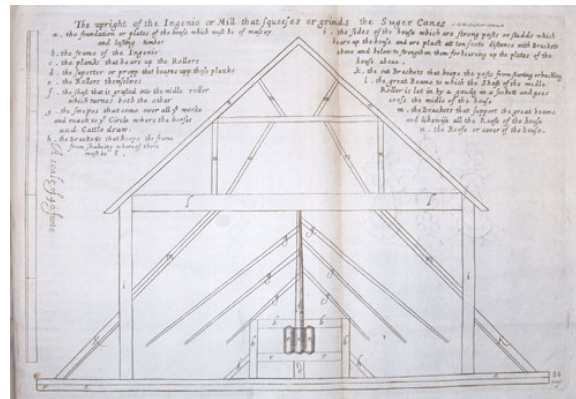 The upright of the Ingenio or Mill that squeeses or grinds the Suger Canes
a. the foundation or plates of the house which must be of massey
and lasting timber
b. the frame of the Ingenio
c. the planks that beare up the Rollers
d. the suporter or propp that beares upp those planks
e. the Rollers themselves
f. the shaft that is grafted into the midle roller
which turnes both the other
g. the sweeps that come over all ye works
and reach to ye Circle where the horses
and Cattle draw.
h. the brackets that keepes the frame
from shaking wherof there
must be 8.
i. the sides of the house which are strong posts or studds which
beare up the house and are plact att ten foote distance with Brackets
above and below to strengthen them for bearing up the plates of the
house above.
k. the out Brackets that keeps the posts from starting or buckling
l. the great Beame to which the Shaft of the midle
Roller is let in by a gouge in a sockett and goes
cross the midle of the house
m. the Brackets that support the great beame
and likewise all the Roofe of the house
n. the Roofe or cover of the house.
A scale of 40 foote
l
l
m
m
i
i
g
g
f
b
b
h
h
c
c
d
k
a
a